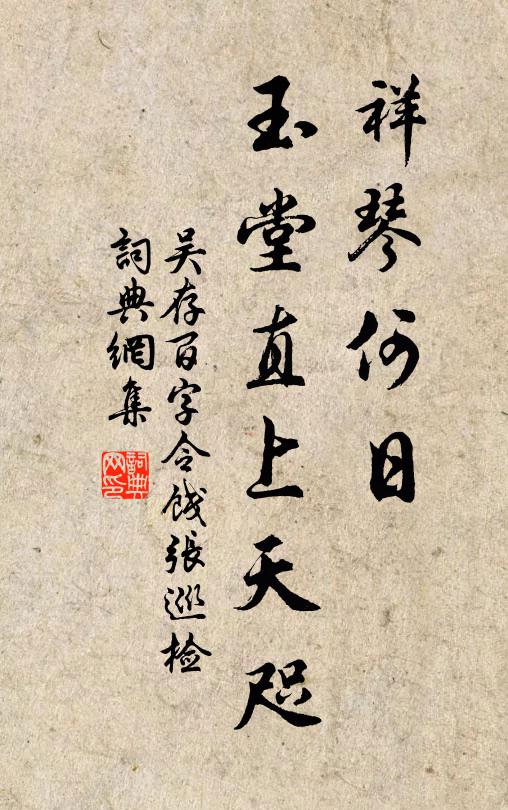 祥琴何日
玉堂直上天咫
吴存百字令饯張巡检
詞典網集
詞典网印